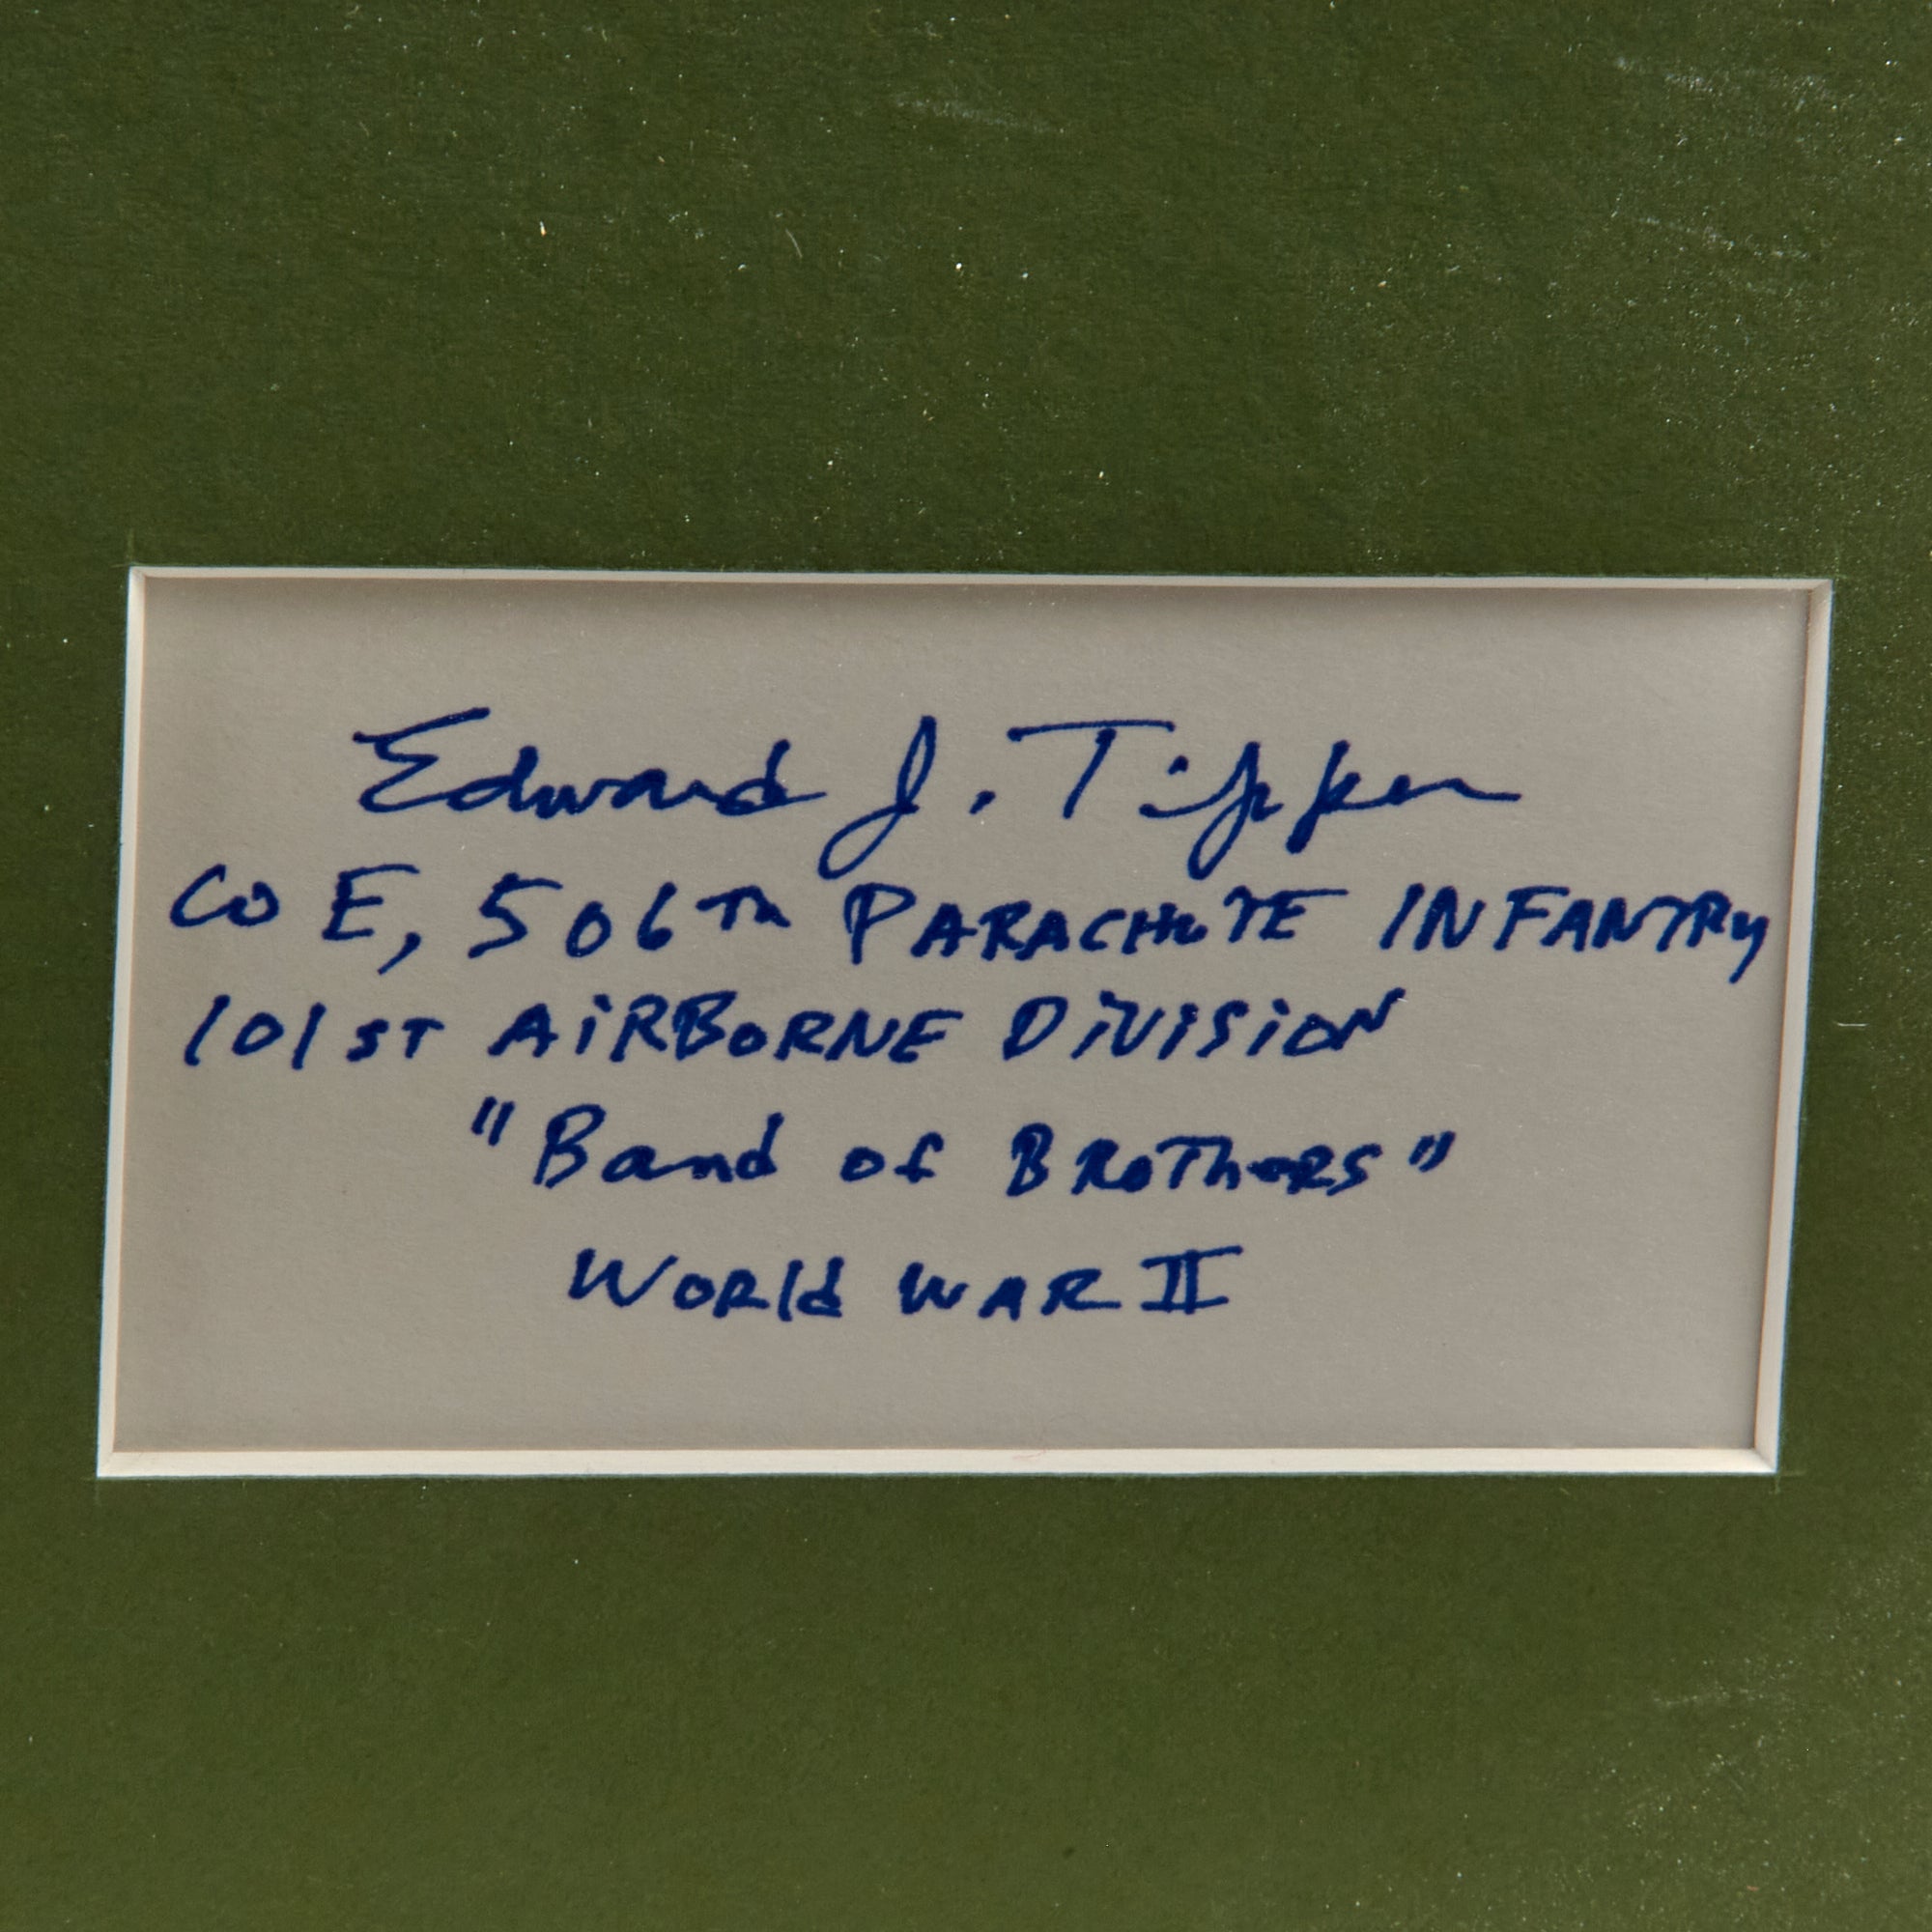 Edward J. Tipper
Co E, 506Th PARACHUTE INFANTRY
101ST AiRBORNE DiViSiON
"Band of BRoThERS"
WORld WAR II